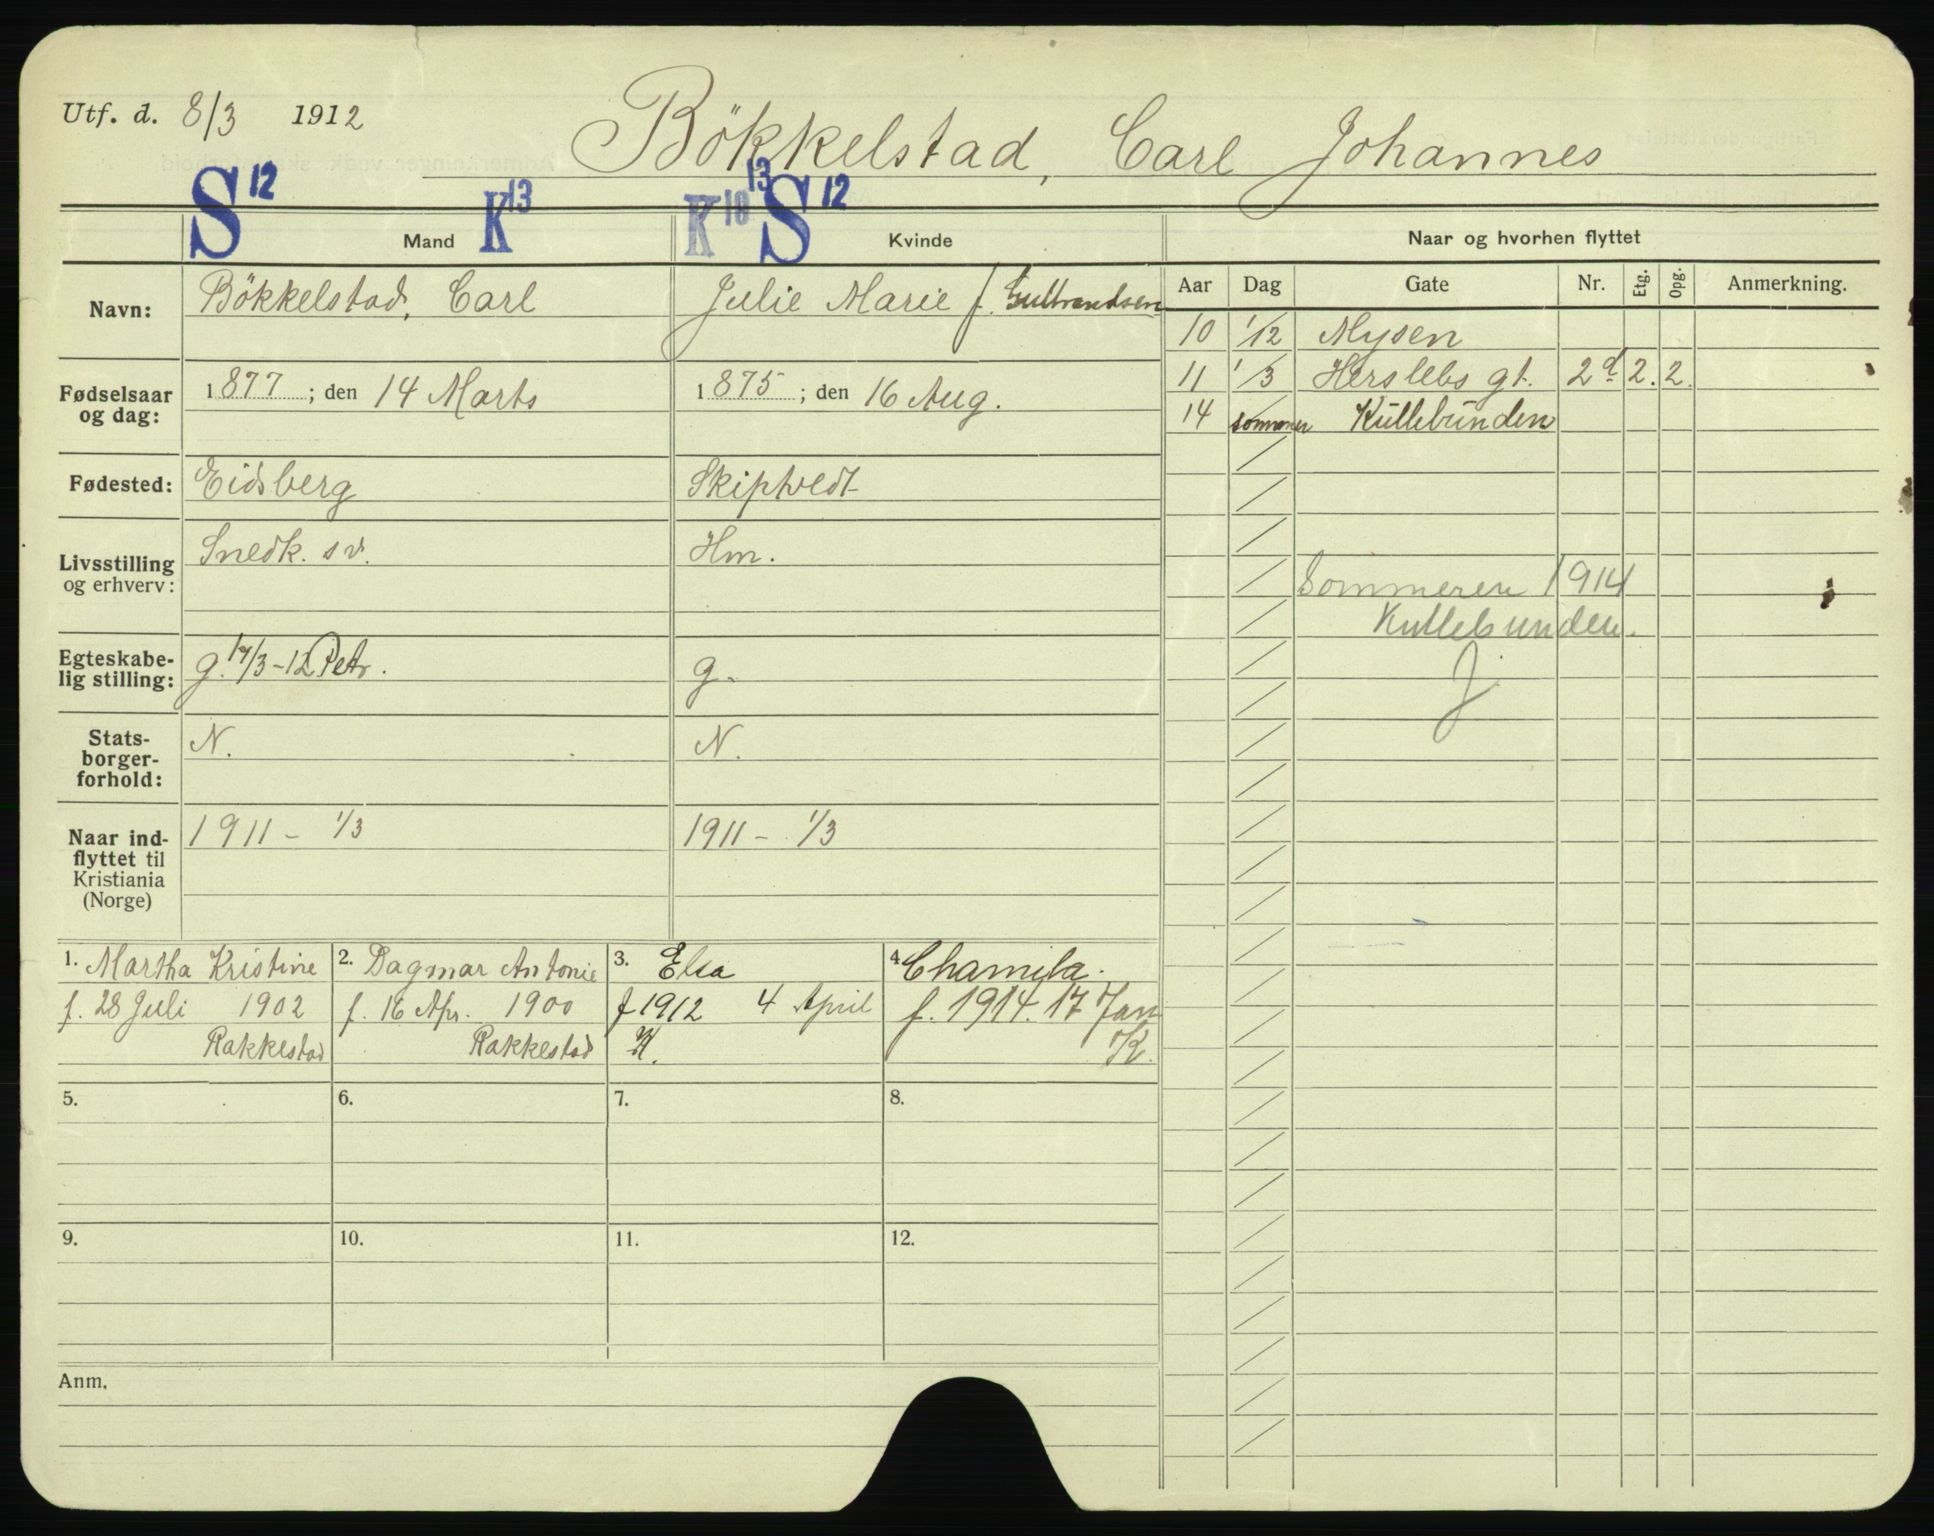 Utf. d. 8/3 1912
Bökkelstad, Carl Johannes
S 12 K 13 K 13 S 12
Mand Kvinde Naar og hvorhen flyttet
Navn: Bökkelstad, Carl Julie Marie f. Gulbrandsen
Aar Dag Gate Nr. Etg. Opg. Anmerkning.
10 1/12 Mysen
Fødselsaar og dag: 1877; den 14 Marts 1875; den 16 Aug.
11 1/3 Herslebs gt. 2d 2. 2.
14 sommer Kullebunden
Fødested: Eidsberg Skiptvedt
Livsstilling og erhverv: Snedk. sv. Hm.
Sommeren 1914
Kullebunden.
J
Egteskabe-
lig stilling: g. 14/3-12 Petr. g.
Stats-
borger-
forhold: N. N.
Naar ind-
flyttet til
Kristiania
(Norge) 1911 - 1/3 1911 - 1/3
1. Martha Kristine 2. Dagmar Antonie 3. Elsa 4. Chamila.
f. 28 Juli 1902 f. 16 Apr. 1900 f 1912 4 April f. 1914. 17 Jan
Rakkestad Rakkestad K. K.
5. 6. 7. 8.
9. 10. 11. 12.
Anm.